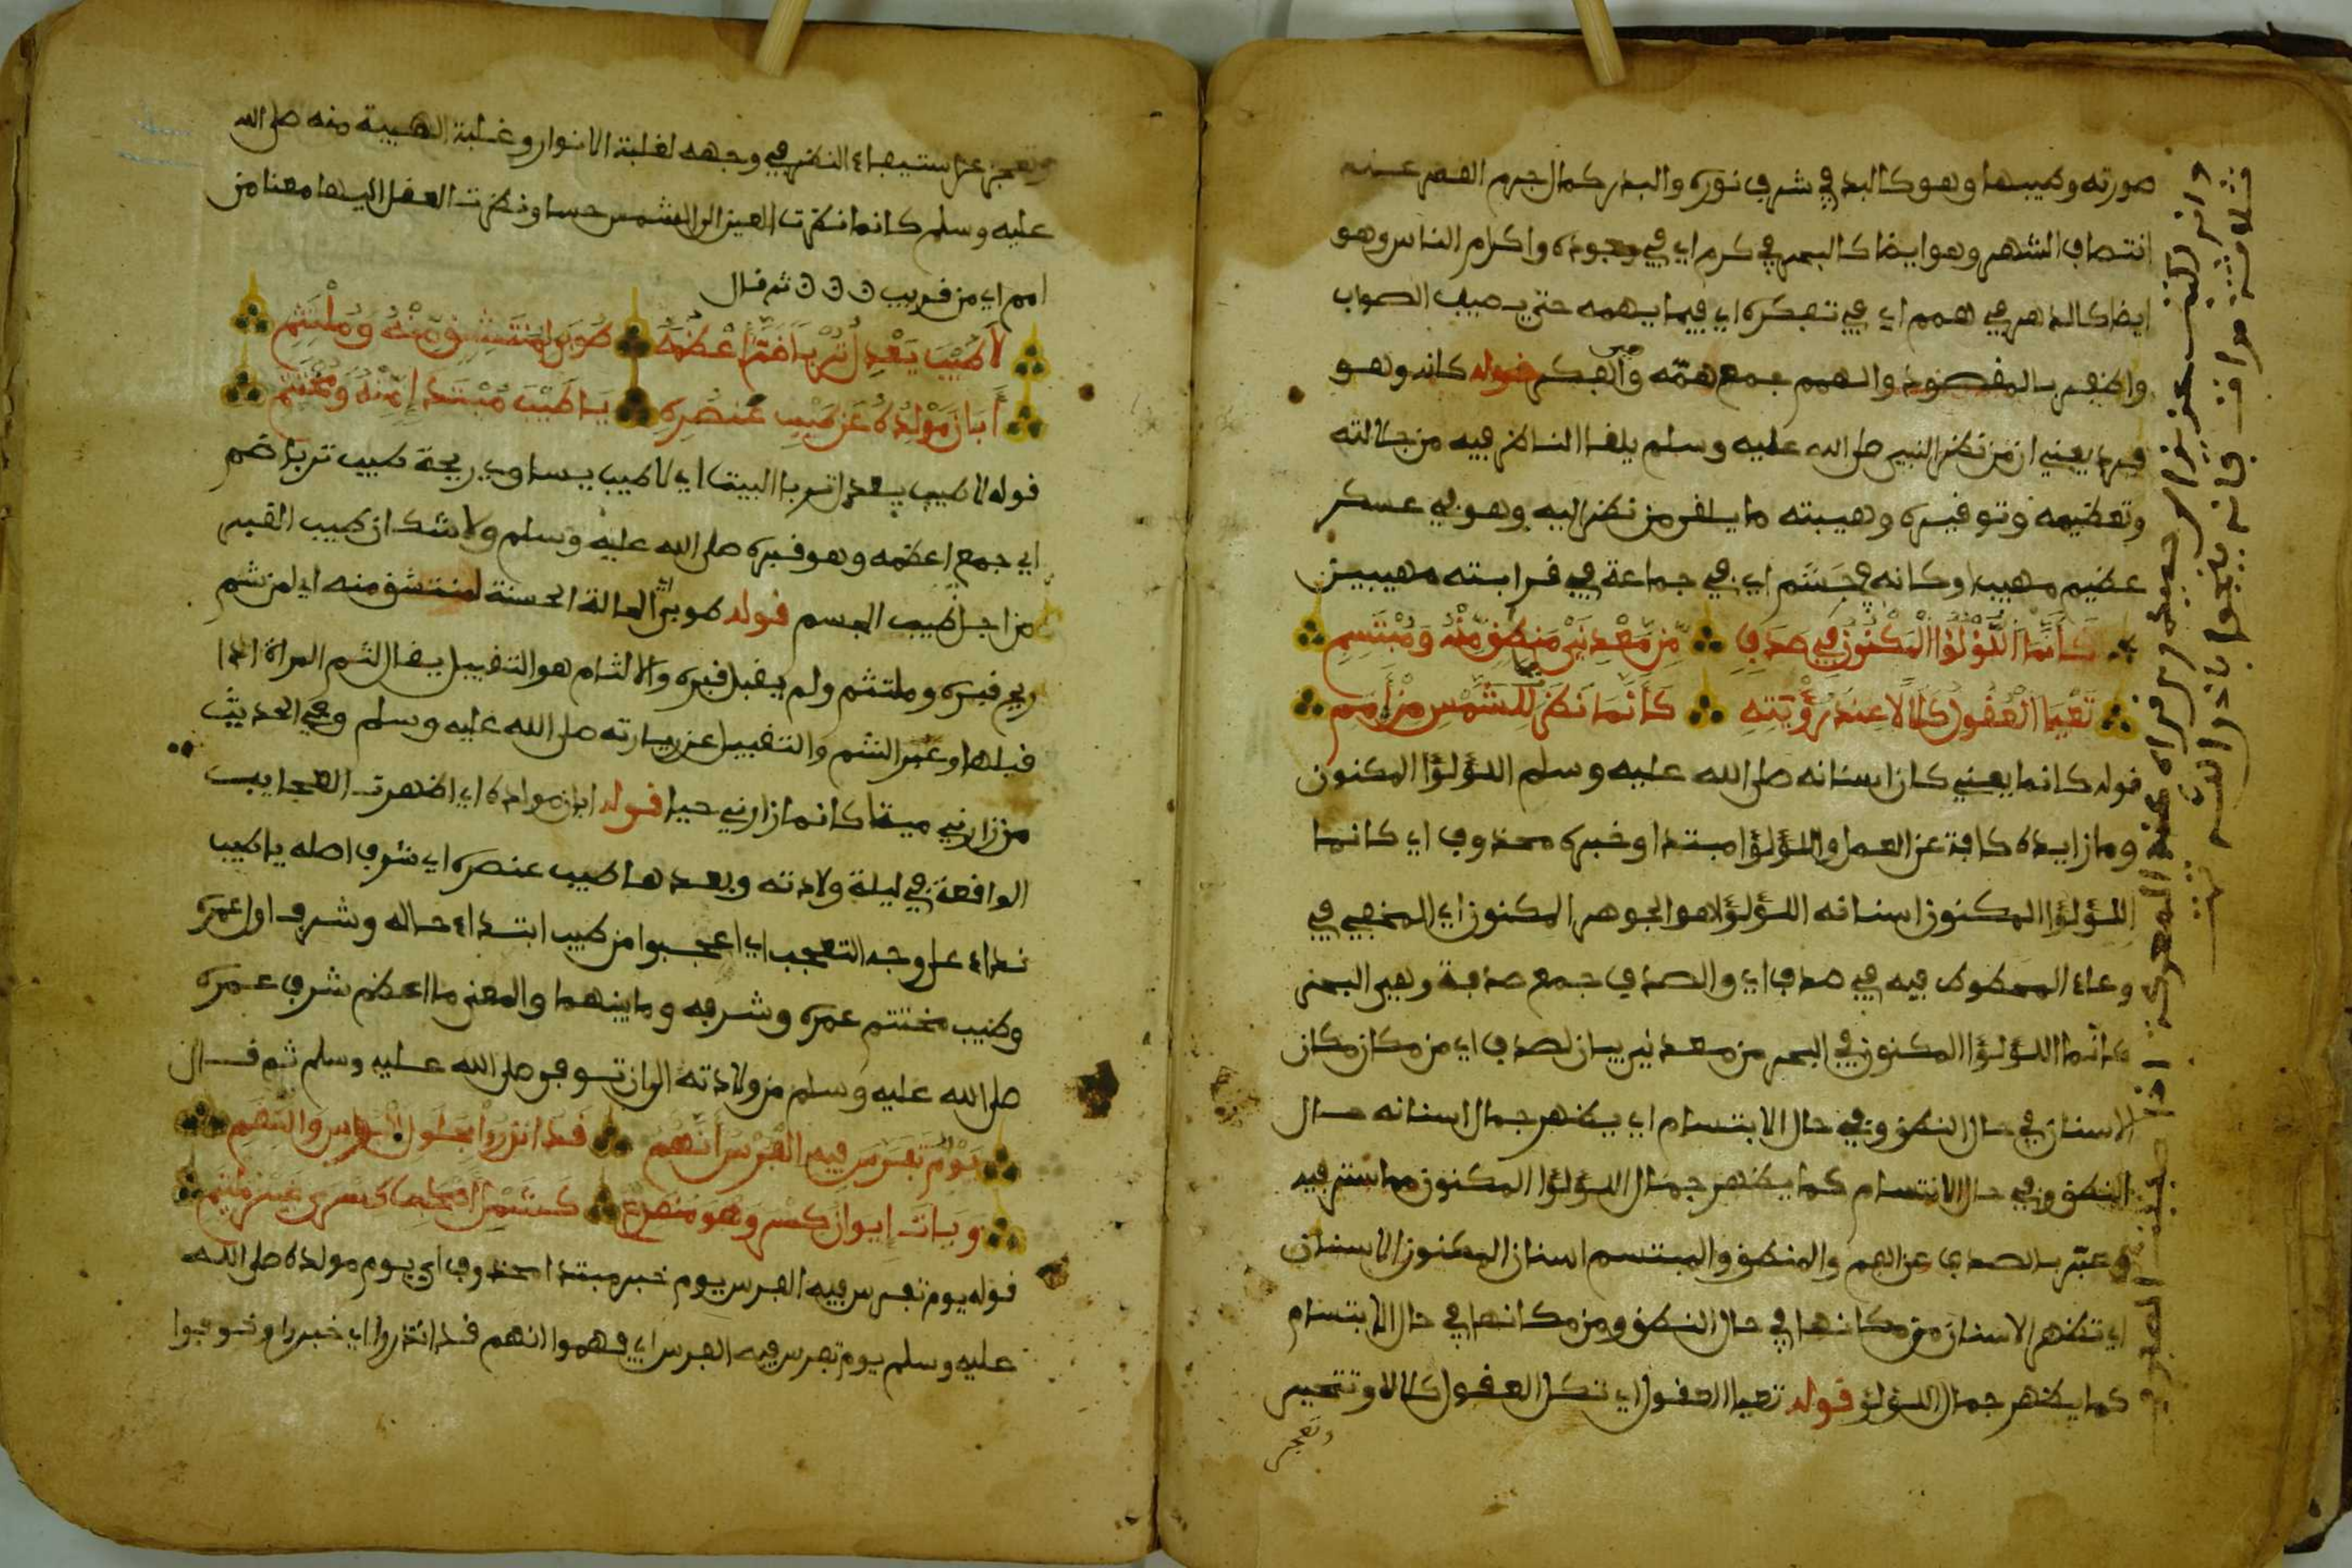 صورته وطيبها وهو كالبدر في شرف نوره والبدر كمال جرم القمر عند
انتصاف الشهر وهو ايضا كالبحر في كرم اي في وجوده واكرام الناس وهو
ايضا كالدهر في همم اي في تفكره اي فيما يهمه حتى يصيب الصواب
واظفر بالمقصود والهمم جمع همّه والفكر قوله كانه وهو
فرد يعني ان من نظر النبي صلى الله عليه وسلم يلفا الناظر فيه من جلالته
وتعظيمه وتوقيره وهيبته ما يلقى من نظر اليه وهو في عسكر
عظيم مهيب او كانه في حشم اي في جماعة في قرابته مهيبين
كَأَنَّمَا اللُّؤْلُؤُا الْمَكْنُونُ فِي صَدَفٍ مِّن مَّعْدِنَيْ مَنطِقٍ مِّنْهُ وَمُبْتَسِمِ
تَعْيَا الْعُقُولُ كَلَالًا عِندَ رُؤْيَتِهِ كَأَنَّمَا نَظَرَ لِلشَّمْسِ مِنْ أَمَمِ
قوله كانما يعني كان اسنانه صلى الله عليه وسلم اللؤلؤا المكنون
وما زايده كافة عن العمل واللؤلؤا مبتدا وخبره محذوف اي كانما
اللؤلؤا المكنون اسنانه اللؤلؤ هو الجوهر المكنون اي المخفي في
وعاء المحطوط فيه في صدف اي والصدف جمع صدفة وهي البحر
كانما اللؤلؤا المكنون في البحر من معدني بيان لصدف اي من مكان مكان
الاسنان في حال النطق وفي حال الابتسام اي يظهر جمال اسنانه حال
النطق وفي حال الابتسام كما يظهر جمال اللؤلؤا المكنون مما ستر فيه
وعبّر بالصدف عن الفم والمنطق والمبتسم اسنان المكنون الاسنان
اي تظهر الاسنان من مكانها في حال النطق ومن مكانها في حال الابتسام
كما يظهر جمال اللؤلؤ قوله تعيا العقول اي تكل العقول كلالا وتتحير
وتعجز
وتعجز عن استيفاء النظر في وجهه لغلبة الانوار وغلبة الهيبة منه صلى الله
عليه وسلم كانما نظرت العين الى الشمس حسا ونظرت العقل اليها معنا من
امم اي من قريب ثم قال
لَا طِيبَ يَعْدِلُ تُرْبًا ضَمَّ أَعْظُمَهُ طُوبَى لِمُنتَشِقٍ مِّنْهُ وَمُلْتَثِمِ
أَبَانَ مَوْلِدُهُ عَن طِيبِ عُنصُرِهِ يَا طِيبَ مُبْتَدَإٍ مِّنْهُ وَمُخْتَتَمِ
قوله لا طيب يعدل تربا البيت اي لا طيب يساوي ريحة طيب تربا ضم
اي جمع اعظمه وهو قبره صلى الله عليه وسلم ولا شك ان طيب القبر
من اجل طيب الجسم قوله طوبى اي الحالة الحسنة لمنتشق منه اي لمن شم
ريح قبره وملتثم ولم يقبل قبره والالتثام هو التقبيل يقال لثم المراة اذا
قبلها وعبر الشم والتقبيل عن زيارته صلى الله عليه وسلم وفي الحديث
من زارني ميتا كانما زارني حيا قوله ابان مولده اي اظهرت العجايب
الواقعة في ليلة ولادته وبعدها طيب عنصره اي شرف اصله يا طيب
نداء على وجه التعجب اي اعجبوا من طيب ابتداء حاله وشرف اول عمره
وطيب مختتم عمره وشرفه وما بينهما والمعنى ما اعظم شرف عمره
صلى الله عليه وسلم من ولادته الى ان توفي صلى الله عليه وسلم ثم قال
يَوْمٌ تَفَرَّسَ فِيهِ الْفُرْسُ أَنَّهُمْ قَدْ انذِرُوا بِحُلُولِ الْبُؤْسِ وَالنِّقَمِ
وَبَاتَ إِيوَانُ كِسْرَى وَهُوَ مُنصَدِعٌ كَشَمْلِ أَصْحَابِ كِسْرَى غَيْرَ مُلْتَئِمِ
قوله يوم تفرس فيه الفرس يوم خبر مبتدا محذوف اي يوم مولده صلى الله
عليه وسلم يوم تفرس فيه الفرس اي فهموا انهم قد انذروا اي خبروا وخوفوا